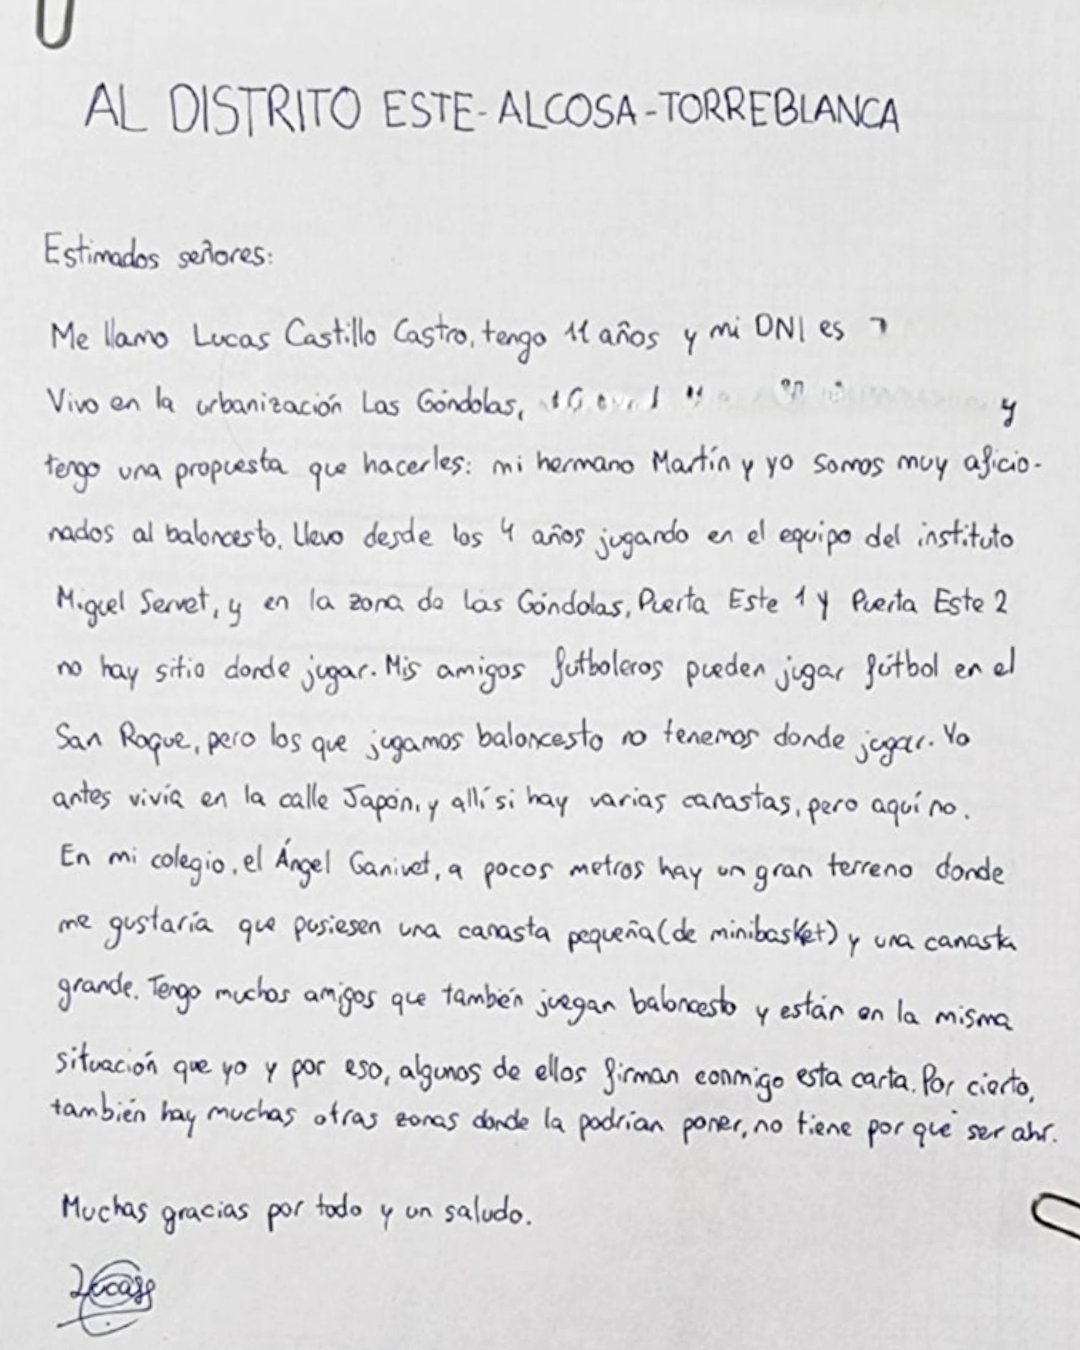 AL DISTRITO ESTE-ALCOSA-TORREBLANCA
Estimados señores:
Me llamo Lucas Castillo Castro, tengo 11 años y mi DNI es
Vivo en la urbanización Las Góndolas, y
tengo una propuesta que hacerles: mi hermano Martín y yo somos muy aficio-
nados al baloncesto. Llevo desde los 4 años jugando en el equipo del instituto
Miguel Servet, y en la zona de Las Góndolas, Puerta Este 1 y Puerta Este 2
no hay sitio donde jugar. Mis amigos futboleros pueden jugar fútbol en el
San Roque, pero los que jugamos baloncesto no tenemos donde jugar. Yo
antes vivía en la calle Japón, y allí si hay varias canastas, pero aquí no.
En mi colegio, el Ángel Ganivet, a pocos metros hay un gran terreno donde
me gustaría que pusiesen una canasta pequeña (de minibasket) y una canasta
grande. Tengo muchos amigos que también juegan baloncesto y están en la misma
situación que yo y por eso, algunos de ellos firman conmigo esta carta. Por cierto,
también hay muchas otras zonas donde la podrían poner, no tiene por qué ser ahí.
Muchas gracias por todo y un saludo.
Lucas